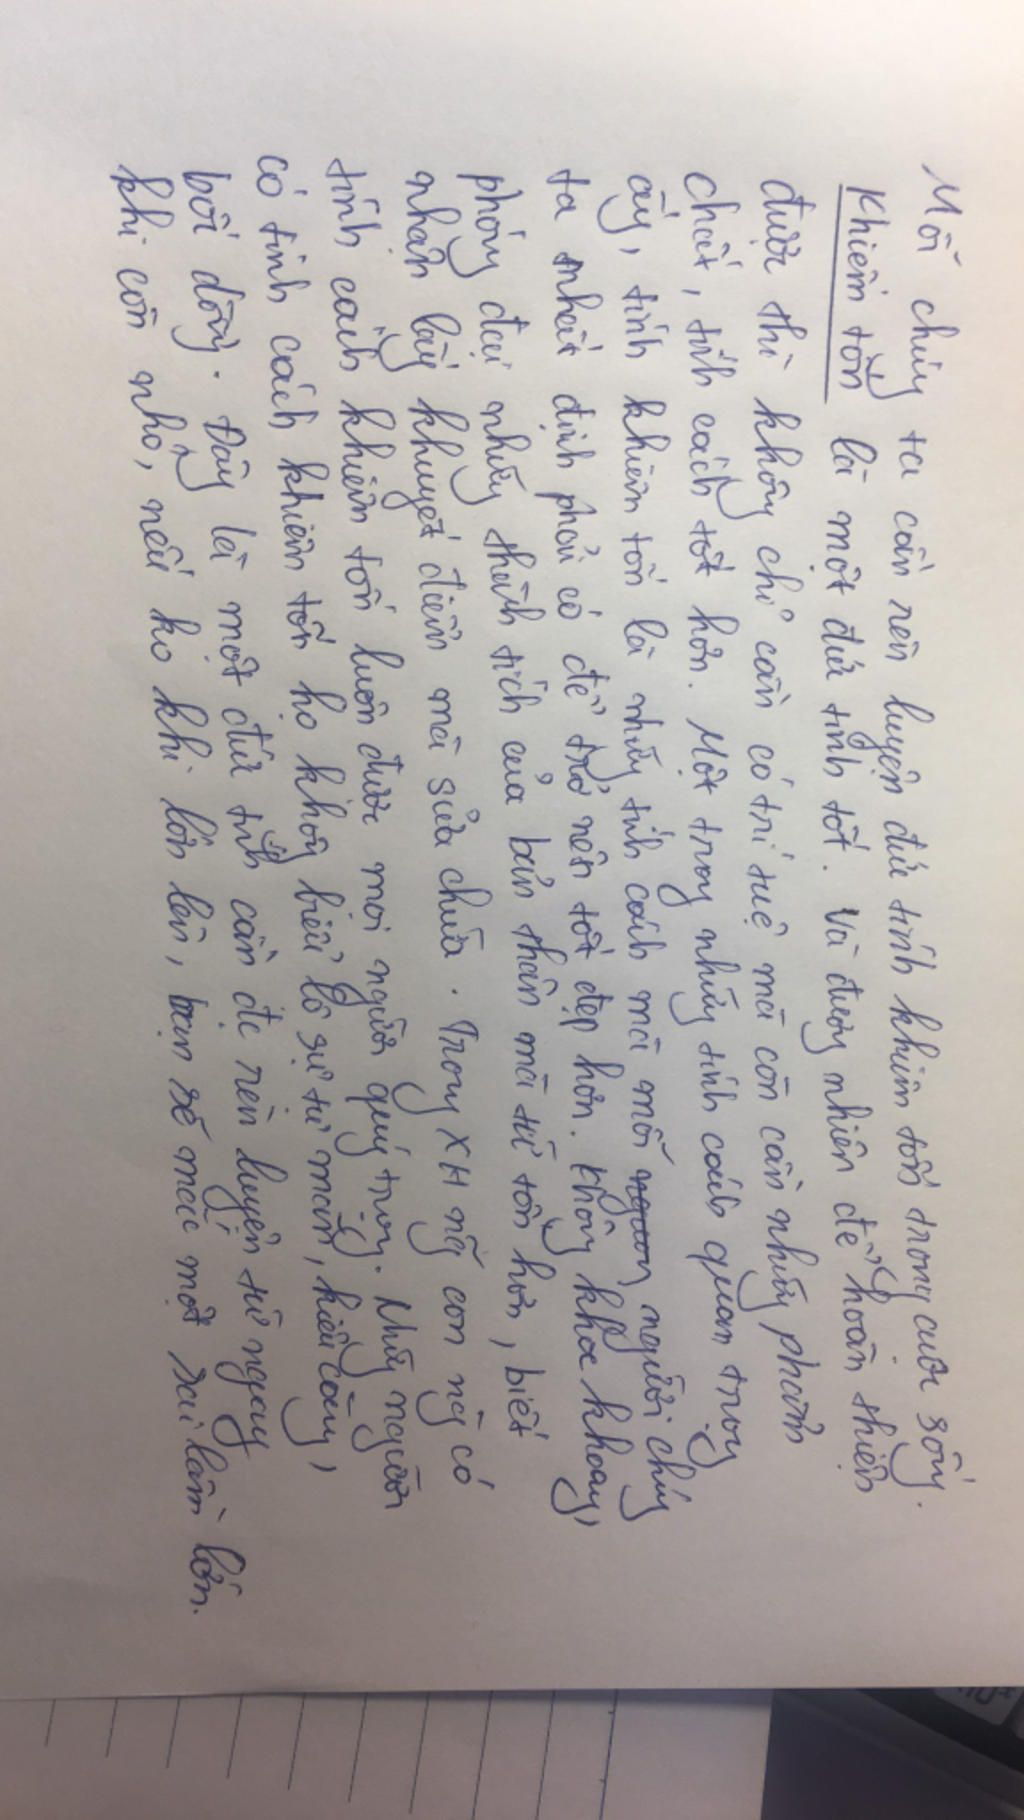 Mỗi chúng ta cần rèn luyện đức tính khiêm tốn trong cuộc sống.
Khiêm tốn là một đức tính tốt. Và đương nhiên để hoàn thiện
được thì không chỉ cần có trí tuệ mà còn cần những phẩm
chất, tính cách tốt hơn. Một trong những tính cách quan trọng
ấy, tính khiêm tốn là những tính cách mà mỗi người chúng
ta nhất định phải có để trở nên tốt đẹp hơn. Không khoe khoang,
phóng đại những thành tích của bản thân mà từ tốn hơn, biết
nhận lấy khuyết điểm mà sửa chữa. Trong XH ng con ng có
tính cách khiêm tốn luôn được mọi người quý trọng. Những người
có tính cách khiêm tốn họ không biểu lộ sự tự mãn, kiêu căng,
bốc đồng. Đây là một đức tính cần đc rèn luyện từ ngay
khi còn nhỏ, nếu ko khi lớn lên, bạn sẽ mắc một sai lầm lớn.